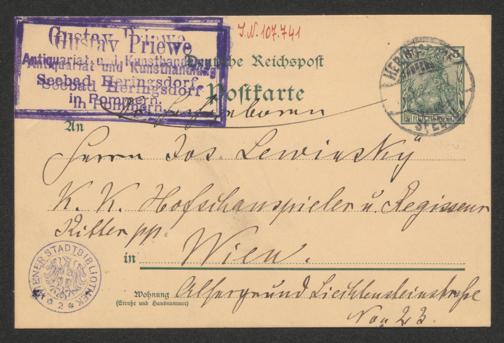 Gustav Priewe
Antiquariat und Kunsthandlung
Seebad Heringsdorf
in Pommern.
I.N. 107.741
Deutsche Reichspost
Postkarte
HERINGSDORF
An
Herrn Jos. Lewinsky
K. K. Hofschauspieler u. Regisseur
Ritter pp.
in Wien.
WIENER STADTBIBLIOTHEK
Wohnung Alsergrund Liechtensteinstraße
(Straße und Hausnummer)
No. 23.